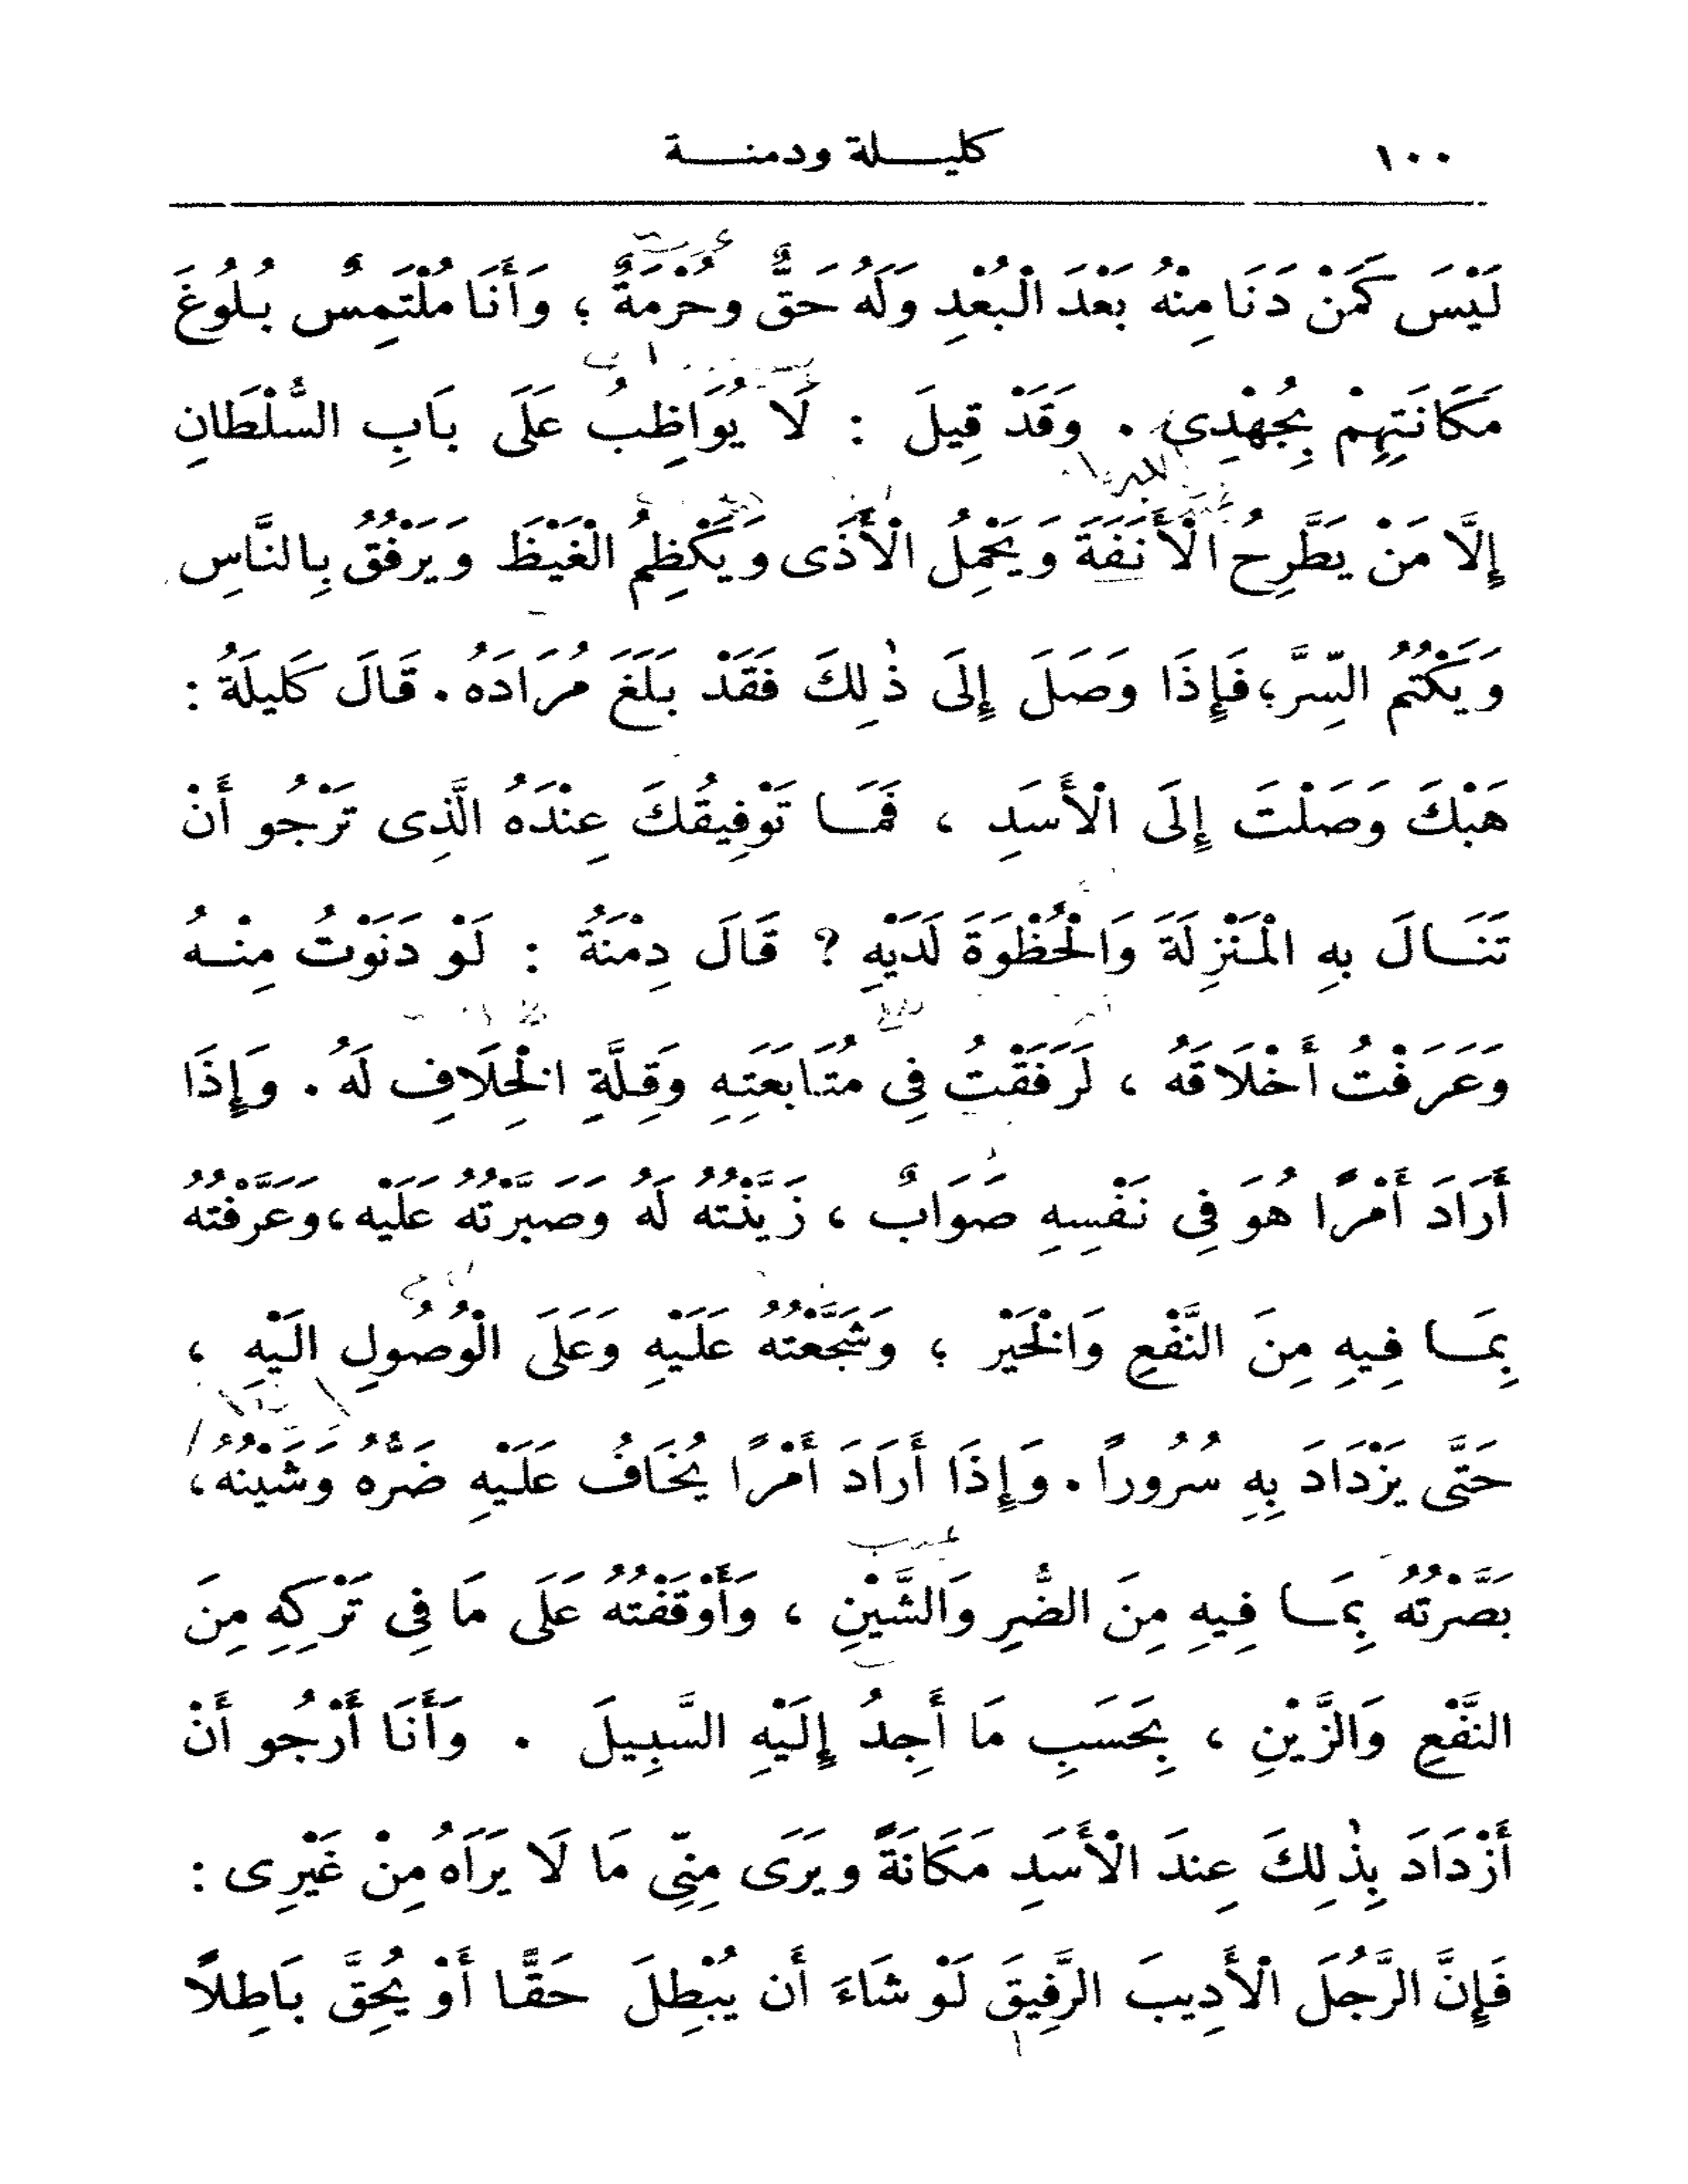 ١٠٠ كليلة ودمنة
لَيْسَ كَمَنْ دَنَا مِنْهُ بَعْدَ الْبُعْدِ وَلَهُ حَقٌّ وحُرْمَةٌ ؛ وَأَنَا مُلْتَمِسٌ بُلُوغَ
مَكَانَتِهِمْ بِجُهْدِى . وَقَدْ قِيلَ : لَا يُوَاظِبُ عَلَى بَابِ السُّلْطَانِ
إِلَّا مَنْ يَطَّرِحُ الْأَنَفَةَ وَيَحْمِلُ الْأَذَى وَيَكْظِمُ الْغَيْظَ وَيَرْفُقُ بِالنَّاسِ
وَيَكْتُمُ السِّرَّ؛ فَإِذَا وَصَلَ إِلَى ذٰلِكَ فَقَدْ بَلَغَ مُرَادَهُ . قَالَ كَلِيلَةُ :
هَبْكَ وَصَلْتَ إِلَى الْأَسَدِ ، فَمَا تَوْفِيقُكَ عِنْدَهُ الَّذِى تَرْجُو أَنْ
تَنَالَ بِهِ الْمَنْزِلَةَ وَالْحُظْوَةَ لَدَيْهِ ? قَالَ دِمْنَةُ : لَوْ دَنَوْتُ مِنْهُ
وَعَرَفْتُ أَخْلَاقَهُ ، لَرَفَقْتُ فِى مُتَابَعَتِهِ وَقِلَّةِ الْخِلَافِ لَهُ . وَإِذَا
أَرَادَ أَمْرًا هُوَ فِى نَفْسِهِ صَوَابٌ ، زَيَّنْتُهُ لَهُ وَصَبَّرْتُهُ عَلَيْهِ ، وَعَرَّفْتُهُ
بِمَا فِيهِ مِنَ النَّفْعِ وَالْخَيْرِ ؛ وَشَجَّعْتُهُ عَلَيْهِ وَعَلَى الْوُصُولِ الَيْهِ ،
حَتَّى يَزْدَادَ بِهِ سُرُوراً . وَإِذَا أَرَادَ أَمْرًا يُخَافُ عَلَيْهِ ضَرُّهُ وَشَيْنُهُ ،
بَصَّرْتُهُ بِمَا فِيهِ مِنَ الضُّرِ وَالشَّيْنِ ، وَأَوْقَفْتُهُ عَلَى مَا فِى تَرْكِهِ مِنَ
النَّفْعِ وَالزَّيْنِ ، بِحَسَبِ مَا أَجِدُ إِلَيْهِ السَّبِيلَ . وَأَنَا أَرْجُو أَنْ
أَزْدَادَ بِذٰلِكَ عِندَ الْأَسَدِ مَكَانَةً ويَرَى مِنِّى مَا لَا يَرَاهُ مِنْ غَيْرِى :
فَإِنَّ الرَّجُلَ الْأَدِيبَ الرَّفِيقَ لَوْ شَاءَ أَن يُبْطِلَ حَقًّا أَوْ يُحِقَّ بَاطِلًا